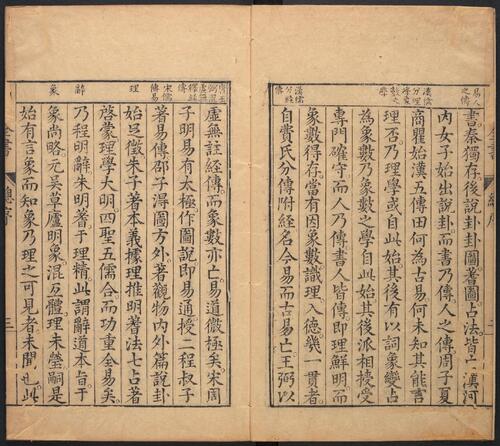 易人之傳
漢儒分理學象數之學
漢儒分經傳
書秦獨存後說卦卦圖蓍圖占法皆亡漢河
內女子始出說卦而書乃傳人之傳周子夏
商瞿始漢五傳田何為古易何未知其能書
理否乃理學或自此始其後有以詞象變占
為象數乃象數之學自此始其後派相授受
專門確守而人乃傳書人皆傳即理鮮明而
象數得存當有因象數識理入德幾一貫者
自費氏分傳附經名今易而古易亡王弼以
宋儒傳易
理
辭
象
虛無註經傳而象數亦亡易道微極矣宋周
子明易有太極作圖說即易通授二程叔子
著易傳邵子淂圖方外著觀物內外篇說卦
始足徵朱子著本義據理推明蓍法七占者
啓蒙理學大明四聖五儒合而功重全易矣
乃程明辭朱明蓍于理精此謂辭道本旨于
象尚略元吳草廬明象混互體理未瑩嗣是
始有言象而知象乃理之可見者未聞也此
全書
總序
三